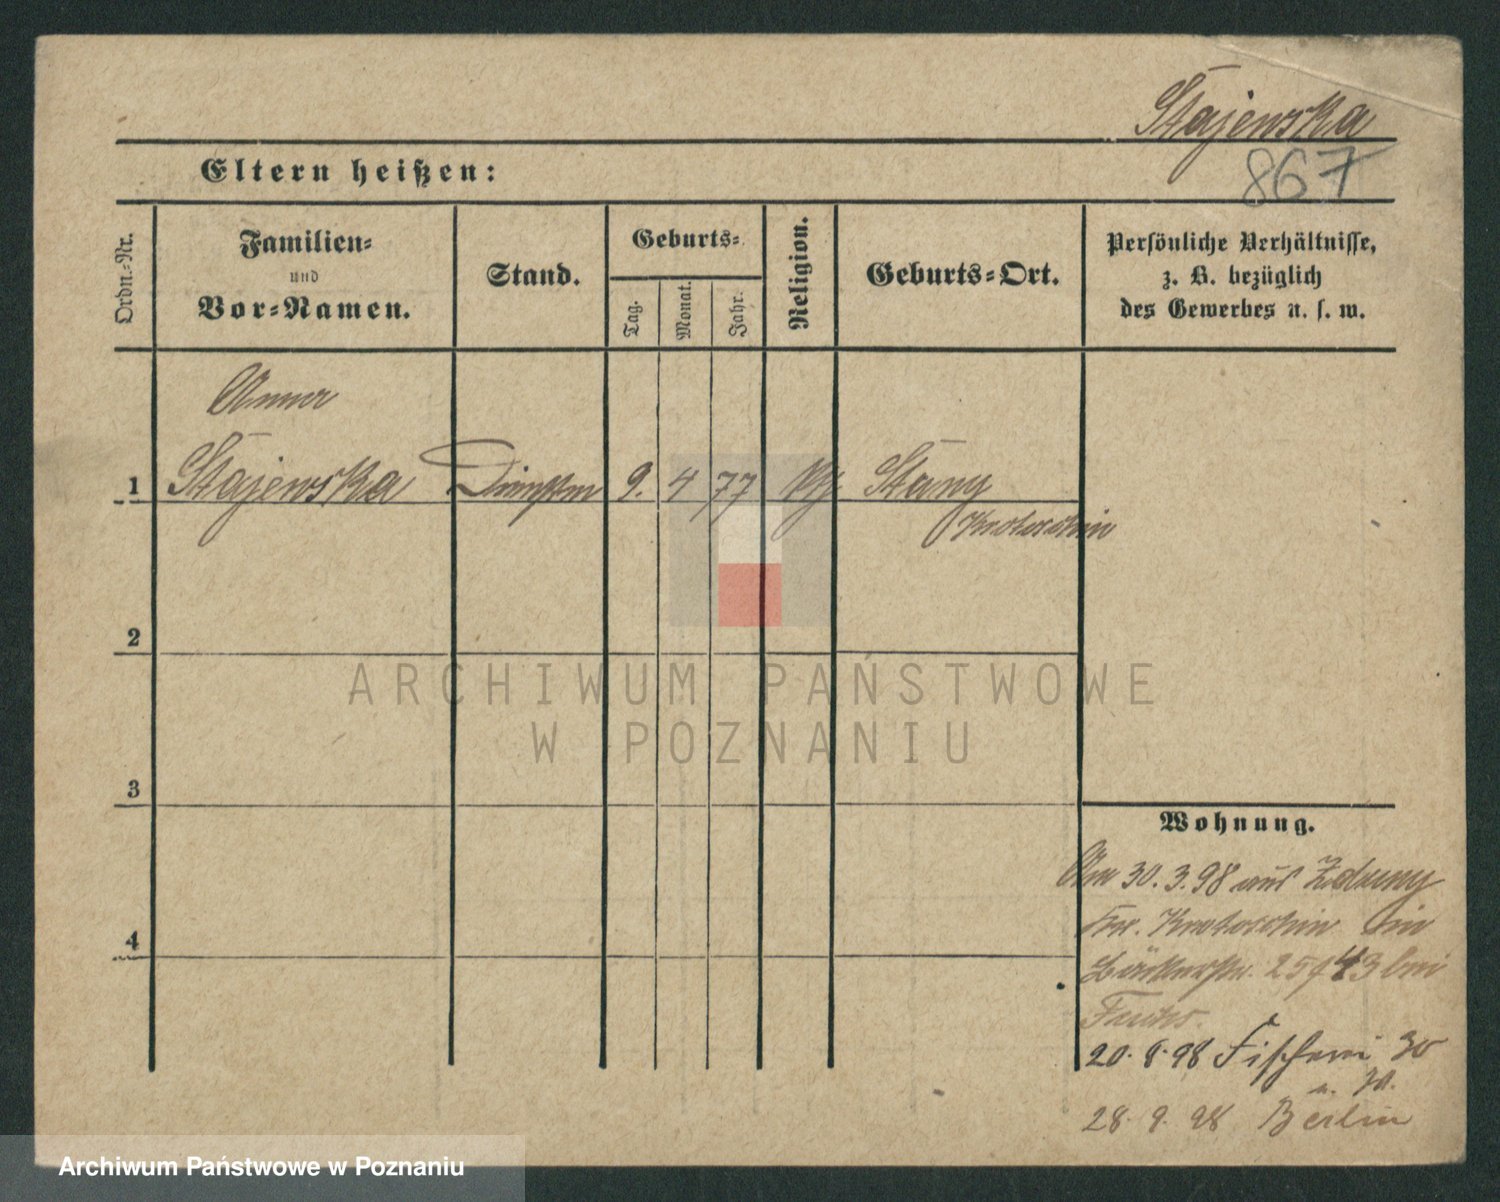 Stajewska
867
Eltern heißen:
Ordn.-Nr.
Familien-
und
Vor-Namen.
Stand.
Geburts-
Tag.
Monat.
Jahr.
Religion.
Geburts-Ort.
Persönliche Verhältnisse,
z. B. bezüglich
des Gewerbes u. s. w.
Anna
1 Stajewska Dienstm 9. 4 77 kf. Stany
Krotoschin
2
ARCHIWUM PAŃSTWOWE
W POZNANIU
3
Wohnung.
Am 30.3.98 aus Zduny
Kr. Krotoschin in
4
Bäckerstr. 25/43 bei
20.8.98 Fischerei 30
28.9.98 Berlin
Archiwum Państwowe w Poznaniu